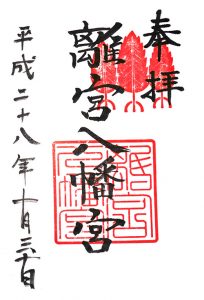 奉拝
離宮八幡宮
平成二十八年十月三十日